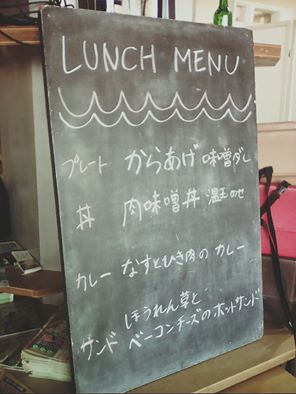 LUNCH MENU
プレート からあげ 味噌だし
丼 肉味噌丼 温玉のせ
カレー なすとひき肉の カレー
ほうれん草と
サンド ベーコンチーズのホットサンド